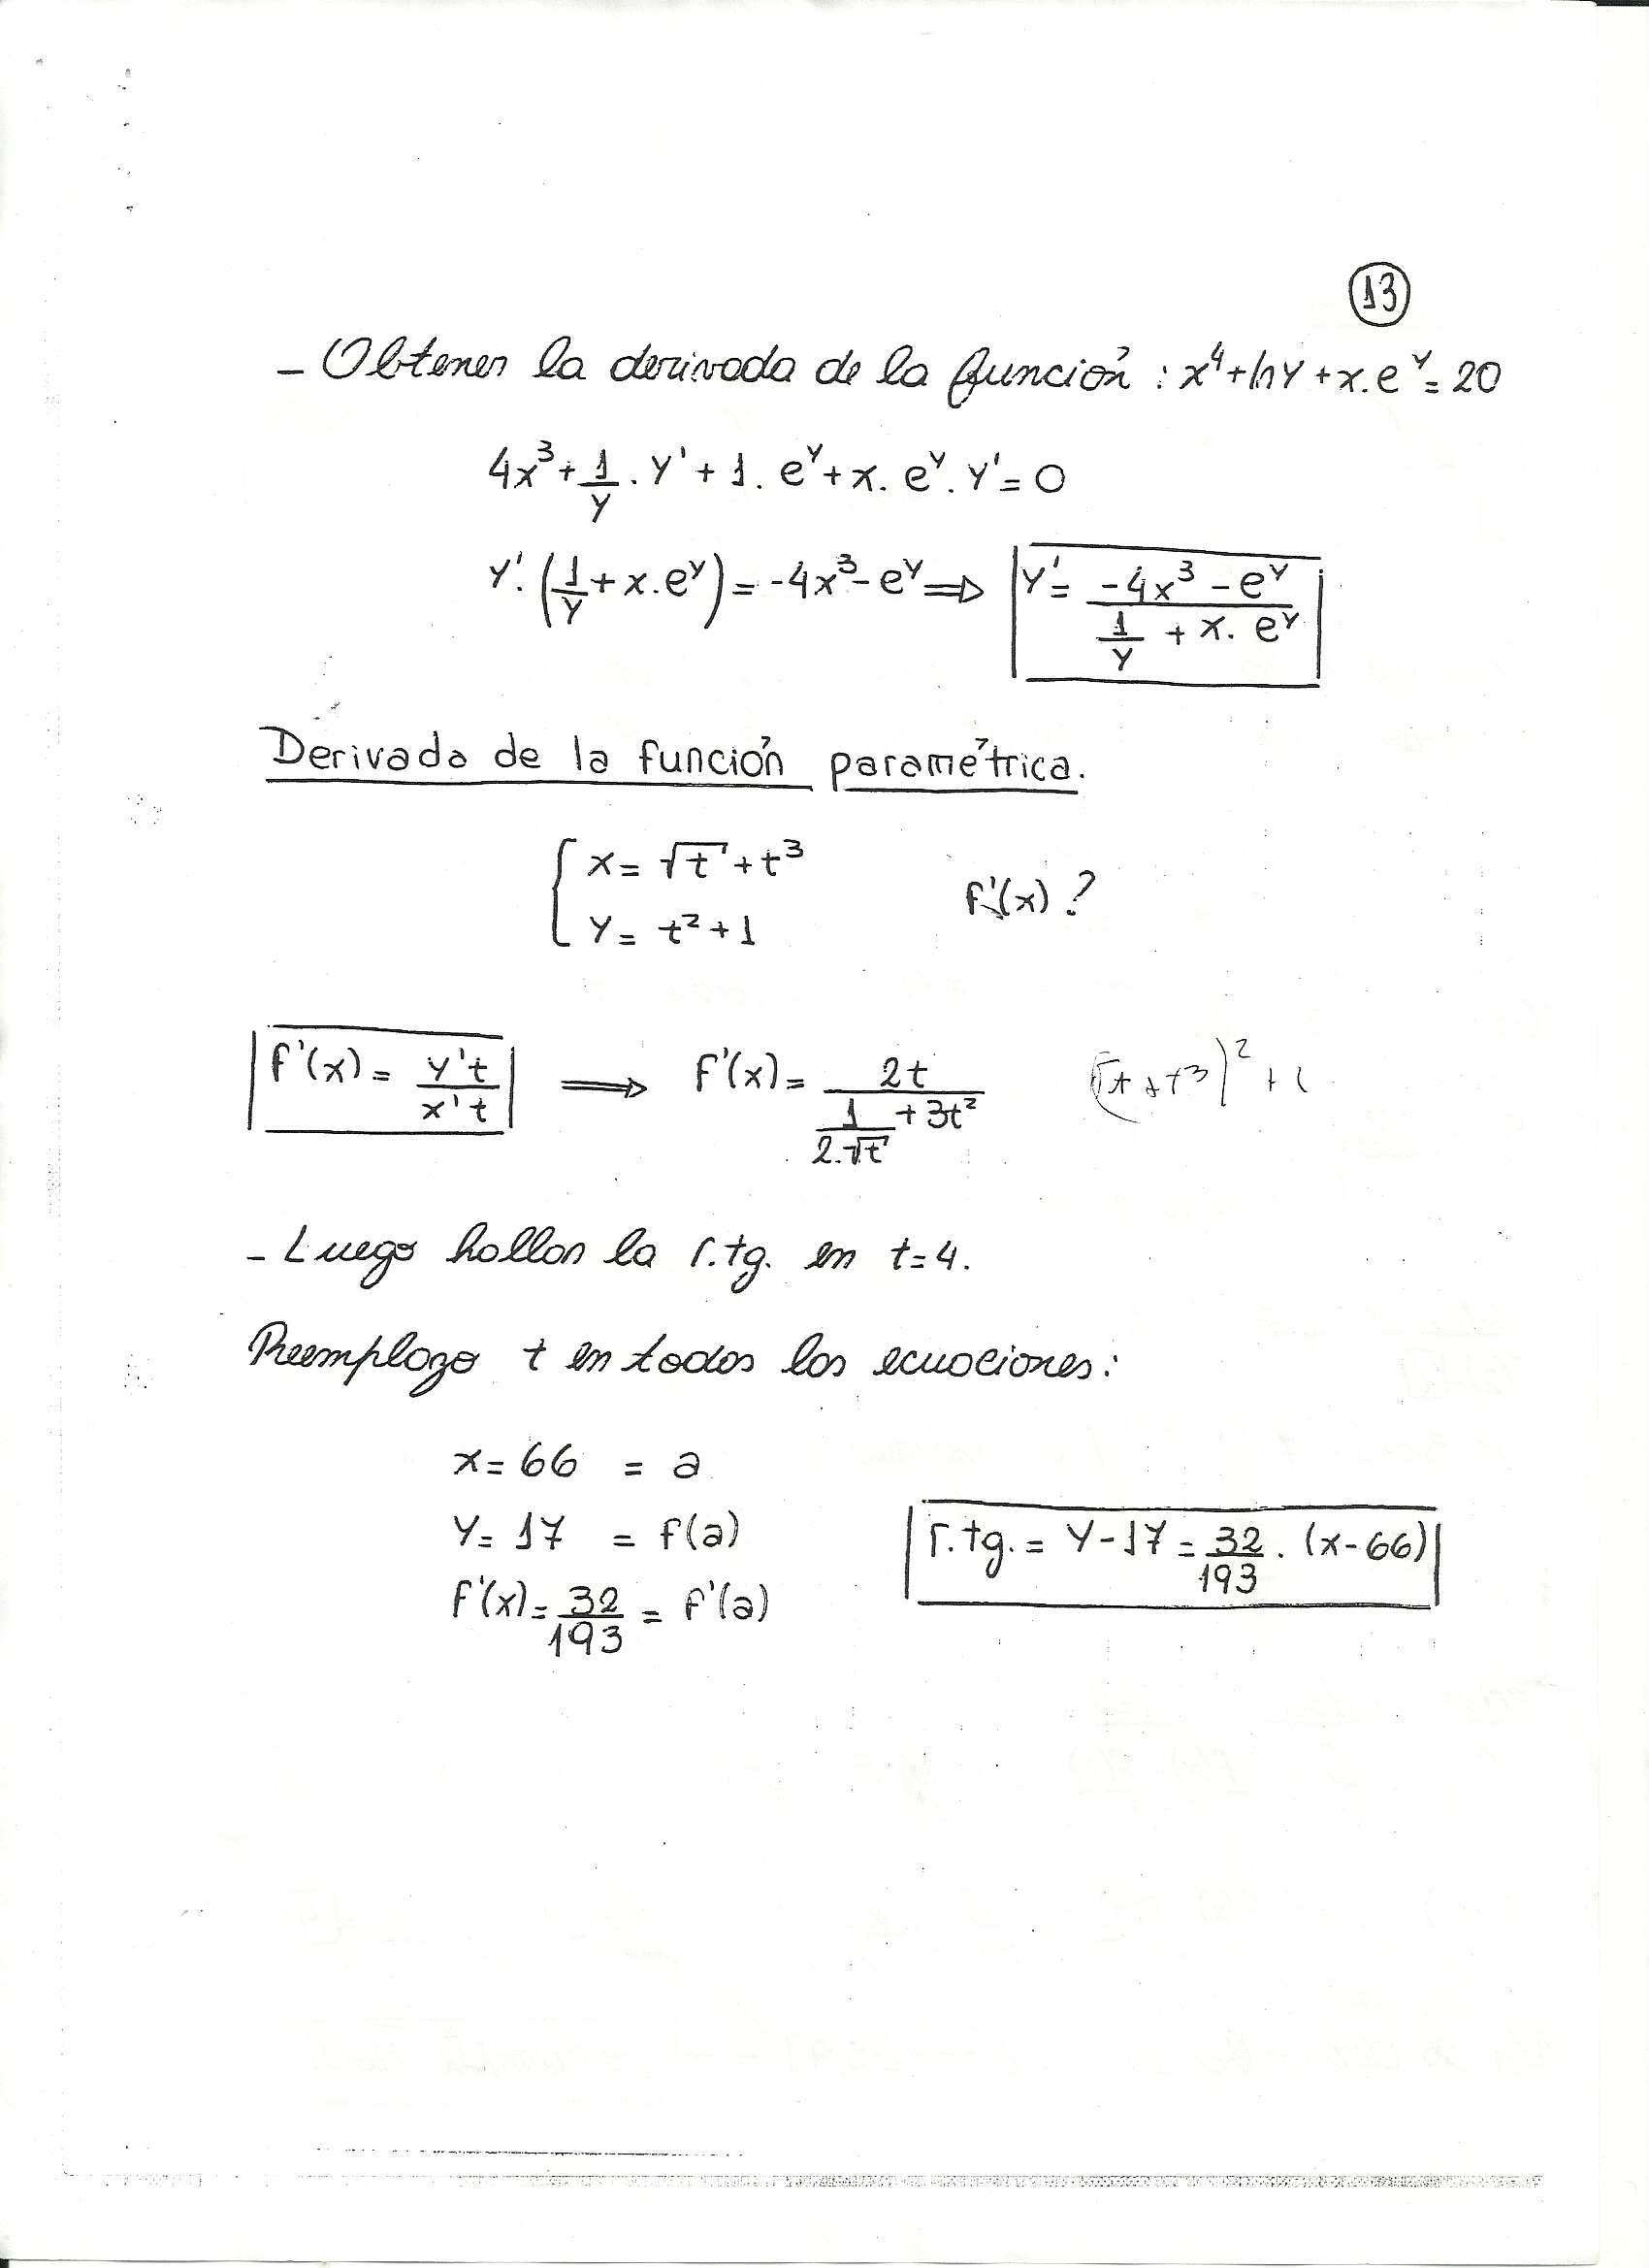 13
- Obtener la derivada de la función : x⁴ + ln y + x . e^y = 20
4x³ + 1/y . y' + 1 . e^y + x . e^y . y' = 0
y' . (1/y + x . e^y) = -4x³ - e^y ⇒ y' = (-4x³ - e^y) / (1/y + x . e^y)
Derivada de la función paramétrica.
x = √t + t³
y = t² + 1
f'(x) ?
f'(x) = y't / x't ⇒ f'(x) = 2t / (1/(2.√t) + 3t²) (√t + t³)² + 1
- Luego hallar la r.tg. en t = 4.
Reemplazo t en todas las ecuaciones :
x = 66 = a
y = 17 = f(a)
f'(x) = 32/193 = f'(a)
r.tg. = y - 17 = 32/193 . (x - 66)